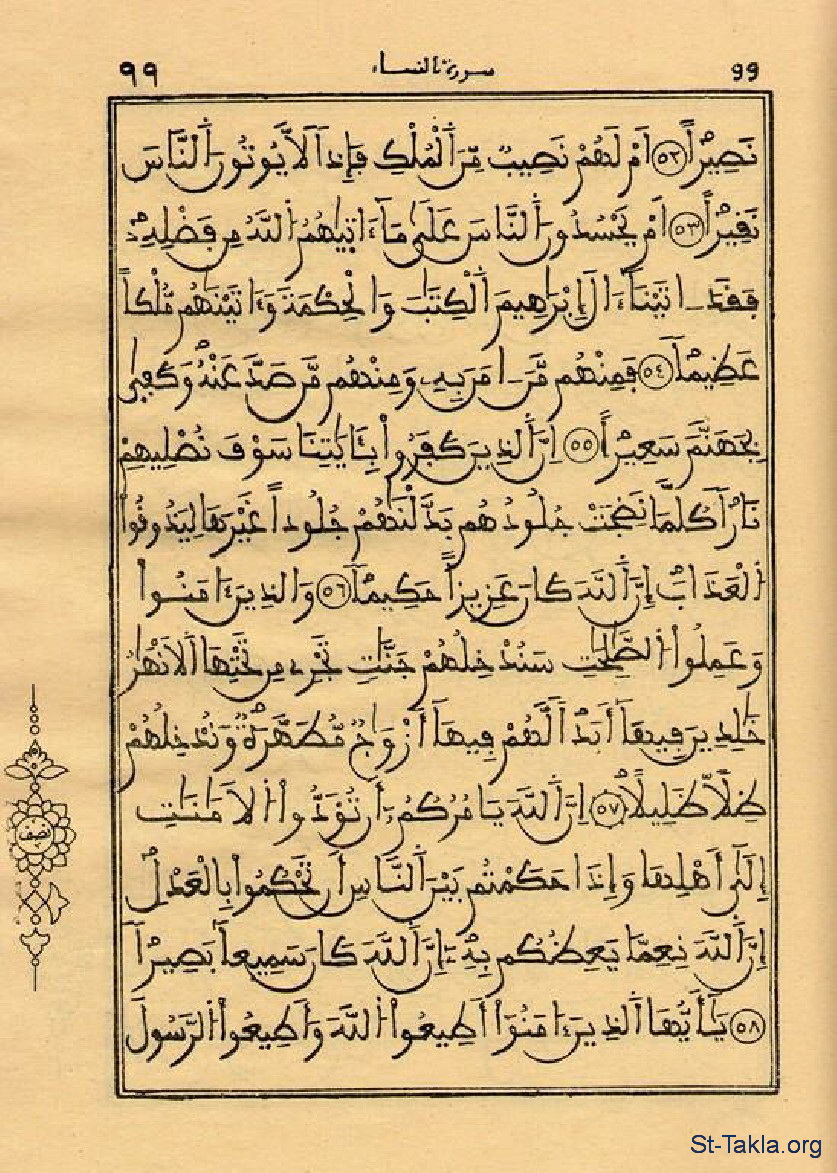 ٩٩ سورة النساء 99
نَصِيراً ٥٢ اَمْ لَهُمْ نَصِيبٌ مِّنَ اَ۬لْمُلْكِ فَإِذاً لَّا يُوتُونَ اَ۬لنَّاسَ
نَقِيراً ٥٣ اَمْ يَحْسُدُونَ اَ۬لنَّاسَ عَلَىٰ مَآ ءَاتٰۭيهُمُ اُ۬للَّهُ مِن فَضْلِهِۦ
فَقَدَ اٰتَيْنَآ ءَالَ إِبْرَٰهِيمَ اَ۬لْكِتَٰبَ وَالْحِكْمَةَ وَءَاتَيْنَٰهُم مُّلْكاً
عَظِيماً ٥٤ فَمِنْهُم مَّنَ اٰمَنَ بِهِۦ وَمِنْهُم مَّن صَدَّ عَنْهُ وَكَفَىٰ
بِجَهَنَّمَ سَعِيراً ٥٥ اِنَّ اَ۬لذِينَ كَفَرُواْ بِـَٔايَٰتِنَا سَوْفَ نُصْلِيهِمْ
نَاراً كُلَّمَا نَضِجَتْ جُلُودُهُم بَدَّلْنَٰهُمْ جُلُوداً غَيْرَهَا لِيَذُوقُواْ
اُ۬لْعَذَابَ إِنَّ اَ۬للَّهَ كَانَ عَزِيزاً حَكِيماً ٥٦ وَالذِينَ ءَامَنُواْ
وَعَمِلُواْ اُ۬لصَّٰلِحَٰتِ سَنُدْخِلُهُمْ جَنَّٰتٍ تَجْرِے مِن تَحْتِهَا اَ۬لَانْهَٰرُ
خَٰلِدِينَ فِيهَآ أَبَداً لَّهُمْ فِيهَآ أَزْوَٰجٌ مُّطَهَّرَةٌ وَنُدْخِلُهُمْ
ظِلّاً ظَلِيلاً ٥٧ اِنَّ اَ۬للَّهَ يَامُرُكُمُۥٓ أَن تُؤَدُّواْ اُ۬لَامَٰنَٰتِ
إِلَىٰٓ أَهْلِهَا وَإِذَا حَكَمْتُم بَيْنَ اَ۬لنَّاسِ أَن تَحْكُمُواْ بِالْعَدْلِ
إِنَّ اَ۬للَّهَ نِعِمَّا يَعِظُكُم بِهِۦٓ إِنَّ اَ۬للَّهَ كَانَ سَمِيعاً بَصِيراً
٥٨ يَٰٓأَيُّهَا اَ۬لذِينَ ءَامَنُوٓاْ أَطِيعُواْ اُ۬للَّهَ وَأَطِيعُواْ اُ۬لرَّسُولَ
نصف
St-Takla.org